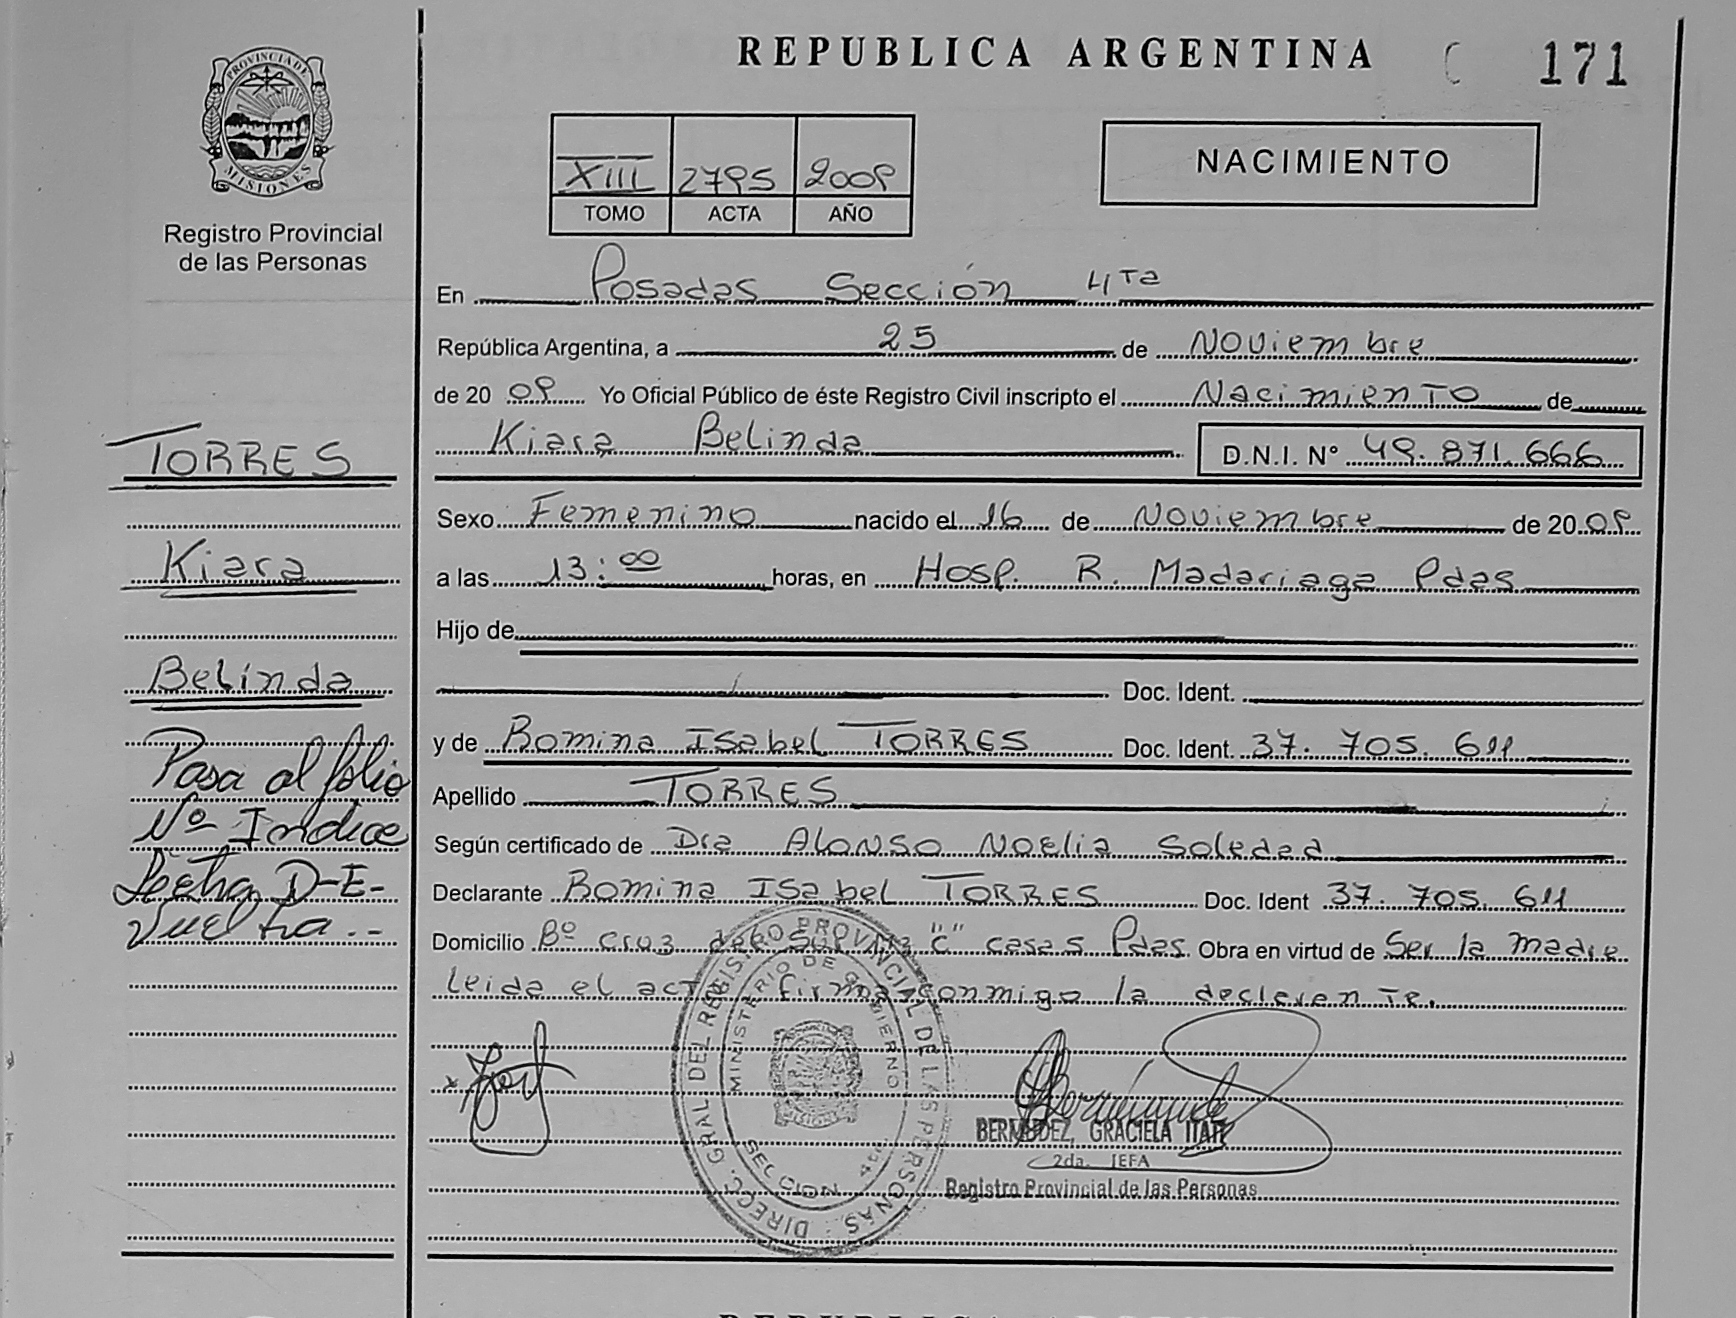 REPUBLICA ARGENTINA
171
PROVINCIA DE
MISIONES
Registro Provincial
de las Personas
XIII 2795 2009
TOMO ACTA AÑO
NACIMIENTO
En Posadas Sección 4Ta
República Argentina, a 25 de Noviembre
de 20 09 Yo Oficial Público de éste Registro Civil inscripto el Nacimiento de
Kiara Belinda D.N.I. N° 49.871.666
Sexo Femenino nacido el 16 de Noviembre de 20 09
a las 13:00 horas, en Hosp. R. Madariaga Pdas
Hijo de
Doc. Ident.
y de Romina Isabel TORRES Doc. Ident. 37.705.611
Apellido TORRES
Según certificado de Dra ALONSO Noelia Soledad
Declarante Romina Isabel TORRES Doc. Ident 37.705.611
Domicilio Bº Cruz del Sur "C" casa 5 Pdas. Obra en virtud de Ser la madre
leida el acta firma conmigo la declarente.
TORRES
Kiara
Belinda
Pasa al folio
Nº Indice
Letra D-E-
Vuelta.-
DIREC. GRAL DEL REGISTRO PROVINCIAL DE LAS PERSONAS
MINISTERIO DE GOBIERNO
SECCION 4ta.
BERMUDEZ, GRACIELA ITATI
2da. JEFA
Registro Provincial de las Personas